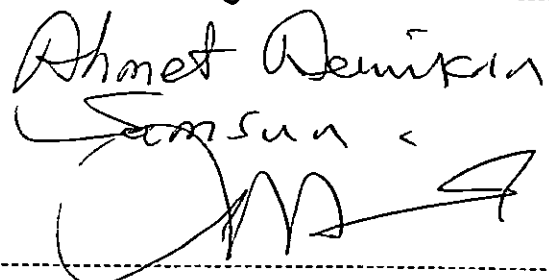 Ahmet Demirkan
Samsun